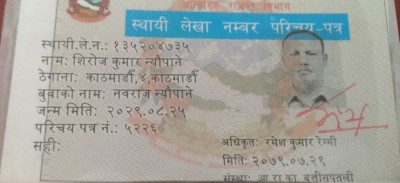 आन्तरिक राजस्व विभाग
स्थायी लेखा नम्बर परिचय-पत्र
स्थायी.ले.न.: १३५२०४७३५
नाम: शिरोज कुमार न्यौपाने
ठेगाना: काठमाडौं,४,काठमाडौं
बुवाको नाम: नवराज न्यौपाने
जन्म मिति: २०२९.०८.२५
परिचय पत्र नं.: ५२२६
सही:
अधिकृत: रमेश कुमार रेग्मी
मिति: २०७९.०७.२९
संस्था: आ.रा.का. बत्तीसपुतली